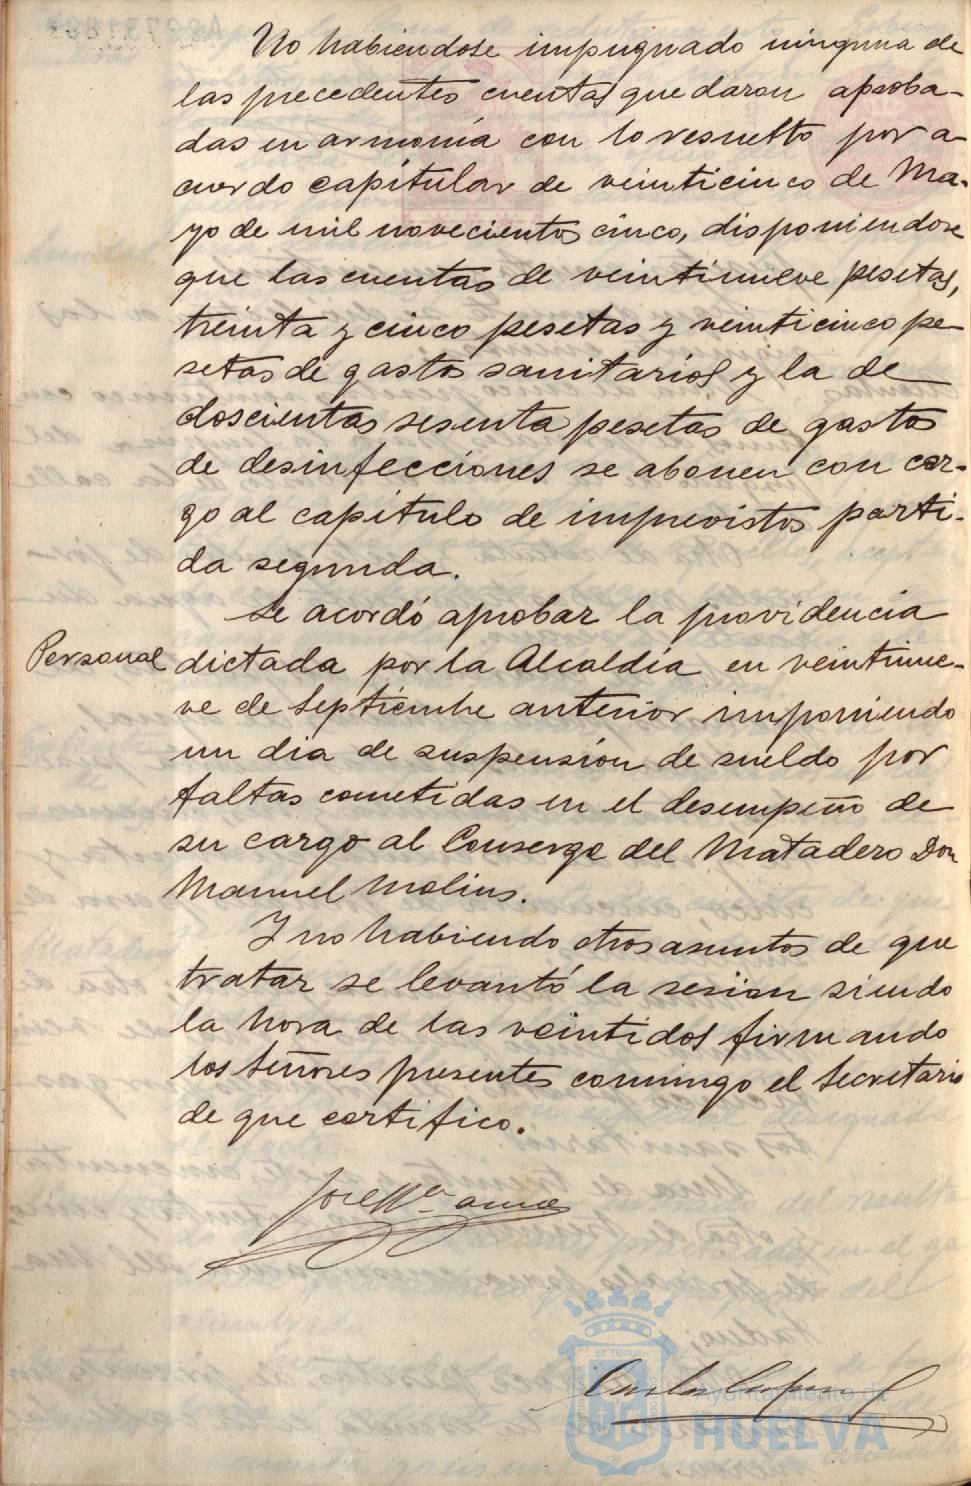 No habiendose impugnado ninguna de
las precedentes cuentas quedaron aproba-
das en armonía con lo resuelto por a-
cuerdo capitular de veinticinco de Ma-
yo de mil novecientos cinco, disponiendose
que las cuentas de veintinueve pesetas,
treinta y cinco pesetas y veinticinco pe-
setas de gastos sanitarios y la de
doscientas sesenta pesetas de gastos
de desinfecciones se abonen con car-
go al capítulo de imprevistos parti-
da segunda.
Se acordó aprobar la providencia
Personal
dictada por la Alcaldía en veintinue-
ve de Septiembre anterior imponiendo
un dia de suspensión de sueldo por
faltas cometidas en el desempeño de
su cargo al Conserge del Matadero Don
Manuel Molins.
Y no habiendo otros asuntos de que
tratar se levantó la sesion siendo
la hora de las veintidos firmando
los Señores presentes conmigo el Secretario
de que certifico.
José Mª
Carlos
Ayuntamiento de
HUELVA